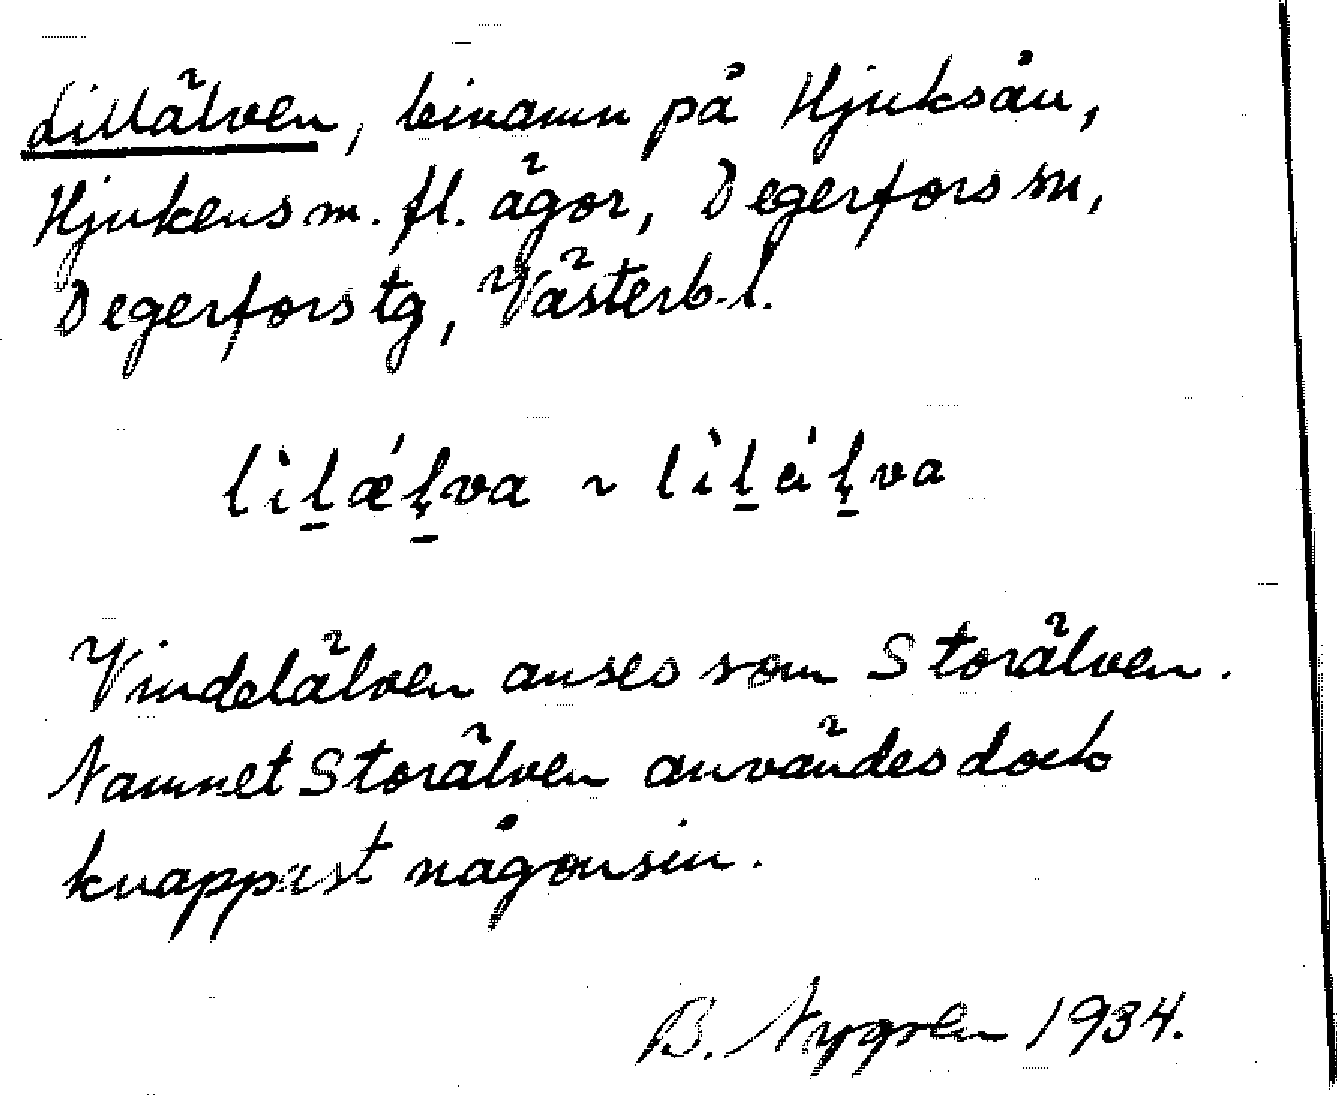 Lillälven, binamn på Hjuksån,
Hjukens m. fl. ägor, Degerfors sn,
Degerfors tg, Västerb. l.
lìḻǽḻva ~ lìḻáḻva
Vindelälven anses som Storälven.
Namnet Storälven användes dock
knappast någonsin.
B. Nygren 1934.